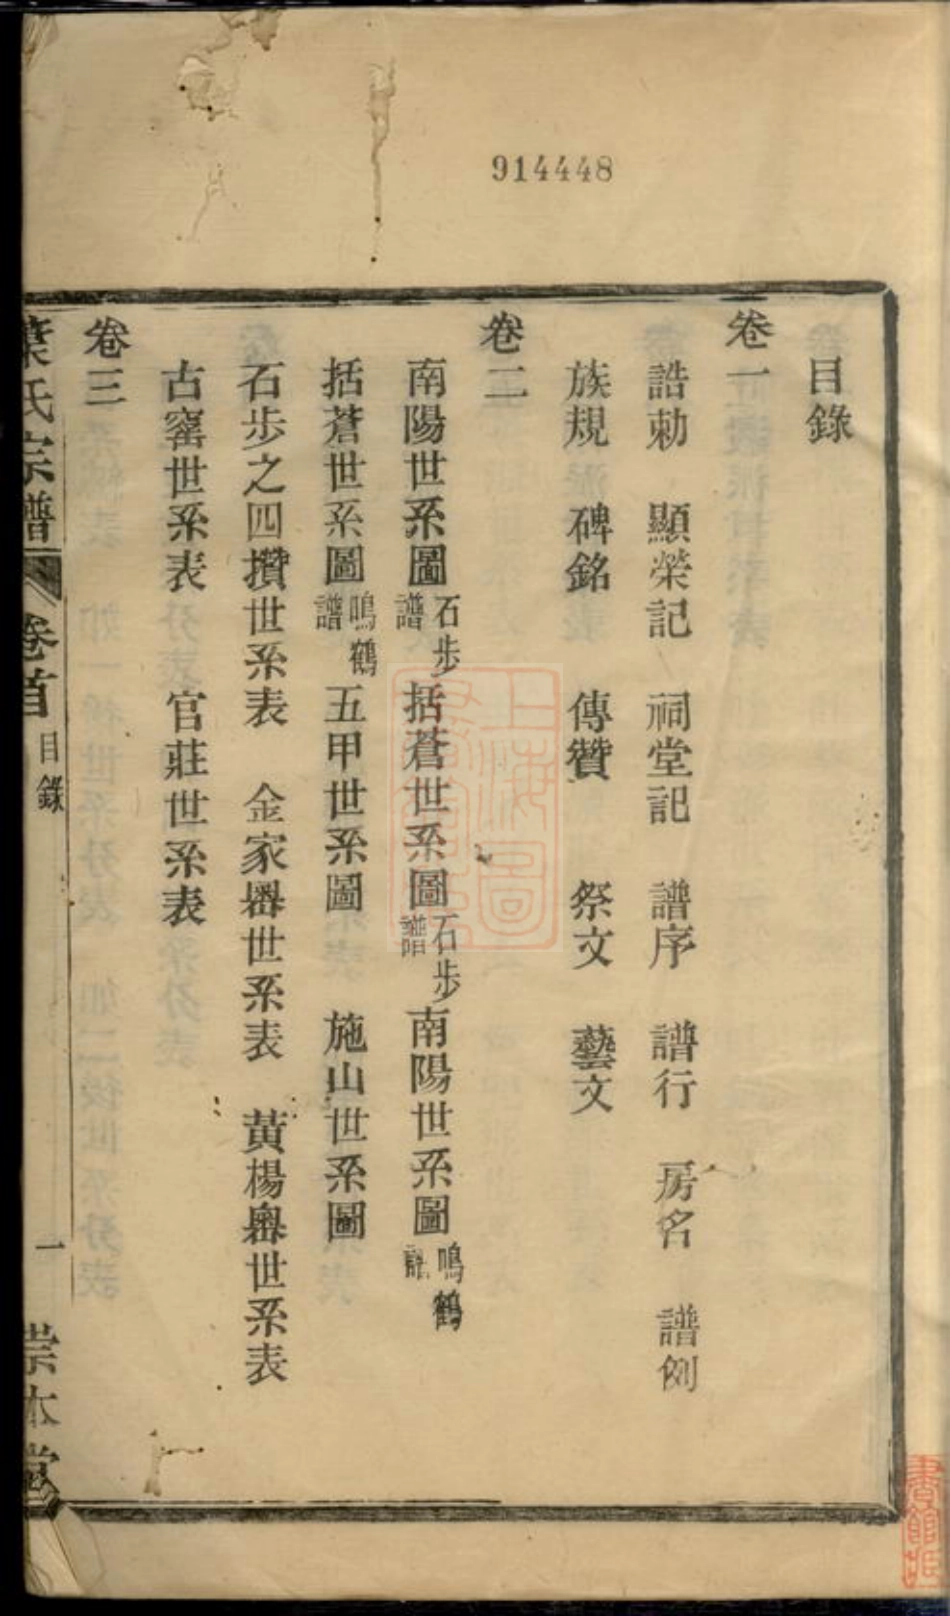 914448
目錄
卷一
誥勅 顯榮記 祠堂記 譜序 譜行 房名 譜例
族規 碑銘 傳贊 祭文 藝文
卷二
南陽世系圖石步譜 括蒼世系圖石步譜 南陽世系圖鳴鶴譜
括蒼世系圖鳴鶴譜 五甲世系圖 施山世系圖
石步之四攢世系表 金家嶴世系表 黃楊嶴世系表
古窰世系表 官莊世系表
卷三
葉氏宗譜 卷首 目錄 一 崇本堂
上海圖書館藏